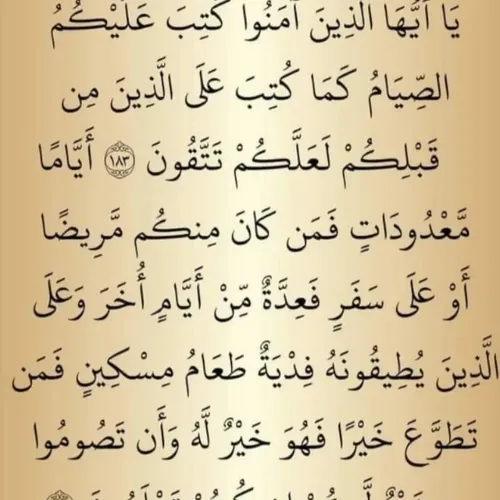 يَا أَيُّهَا الَّذِينَ آمَنُوا كُتِبَ عَلَيْكُمُ
الصِّيَامُ كَمَا كُتِبَ عَلَى الَّذِينَ مِن
قَبْلِكُمْ لَعَلَّكُمْ تَتَّقُونَ ١٨٣ أَيَّامًا
مَّعْدُودَاتٍ فَمَن كَانَ مِنكُم مَّرِيضًا
أَوْ عَلَى سَفَرٍ فَعِدَّةٌ مِّنْ أَيَّامٍ أُخَرَ وَعَلَى
الَّذِينَ يُطِيقُونَهُ فِدْيَةٌ طَعَامُ مِسْكِينٍ فَمَن
تَطَوَّعَ خَيْرًا فَهُوَ خَيْرٌ لَّهُ وَأَن تَصُومُوا